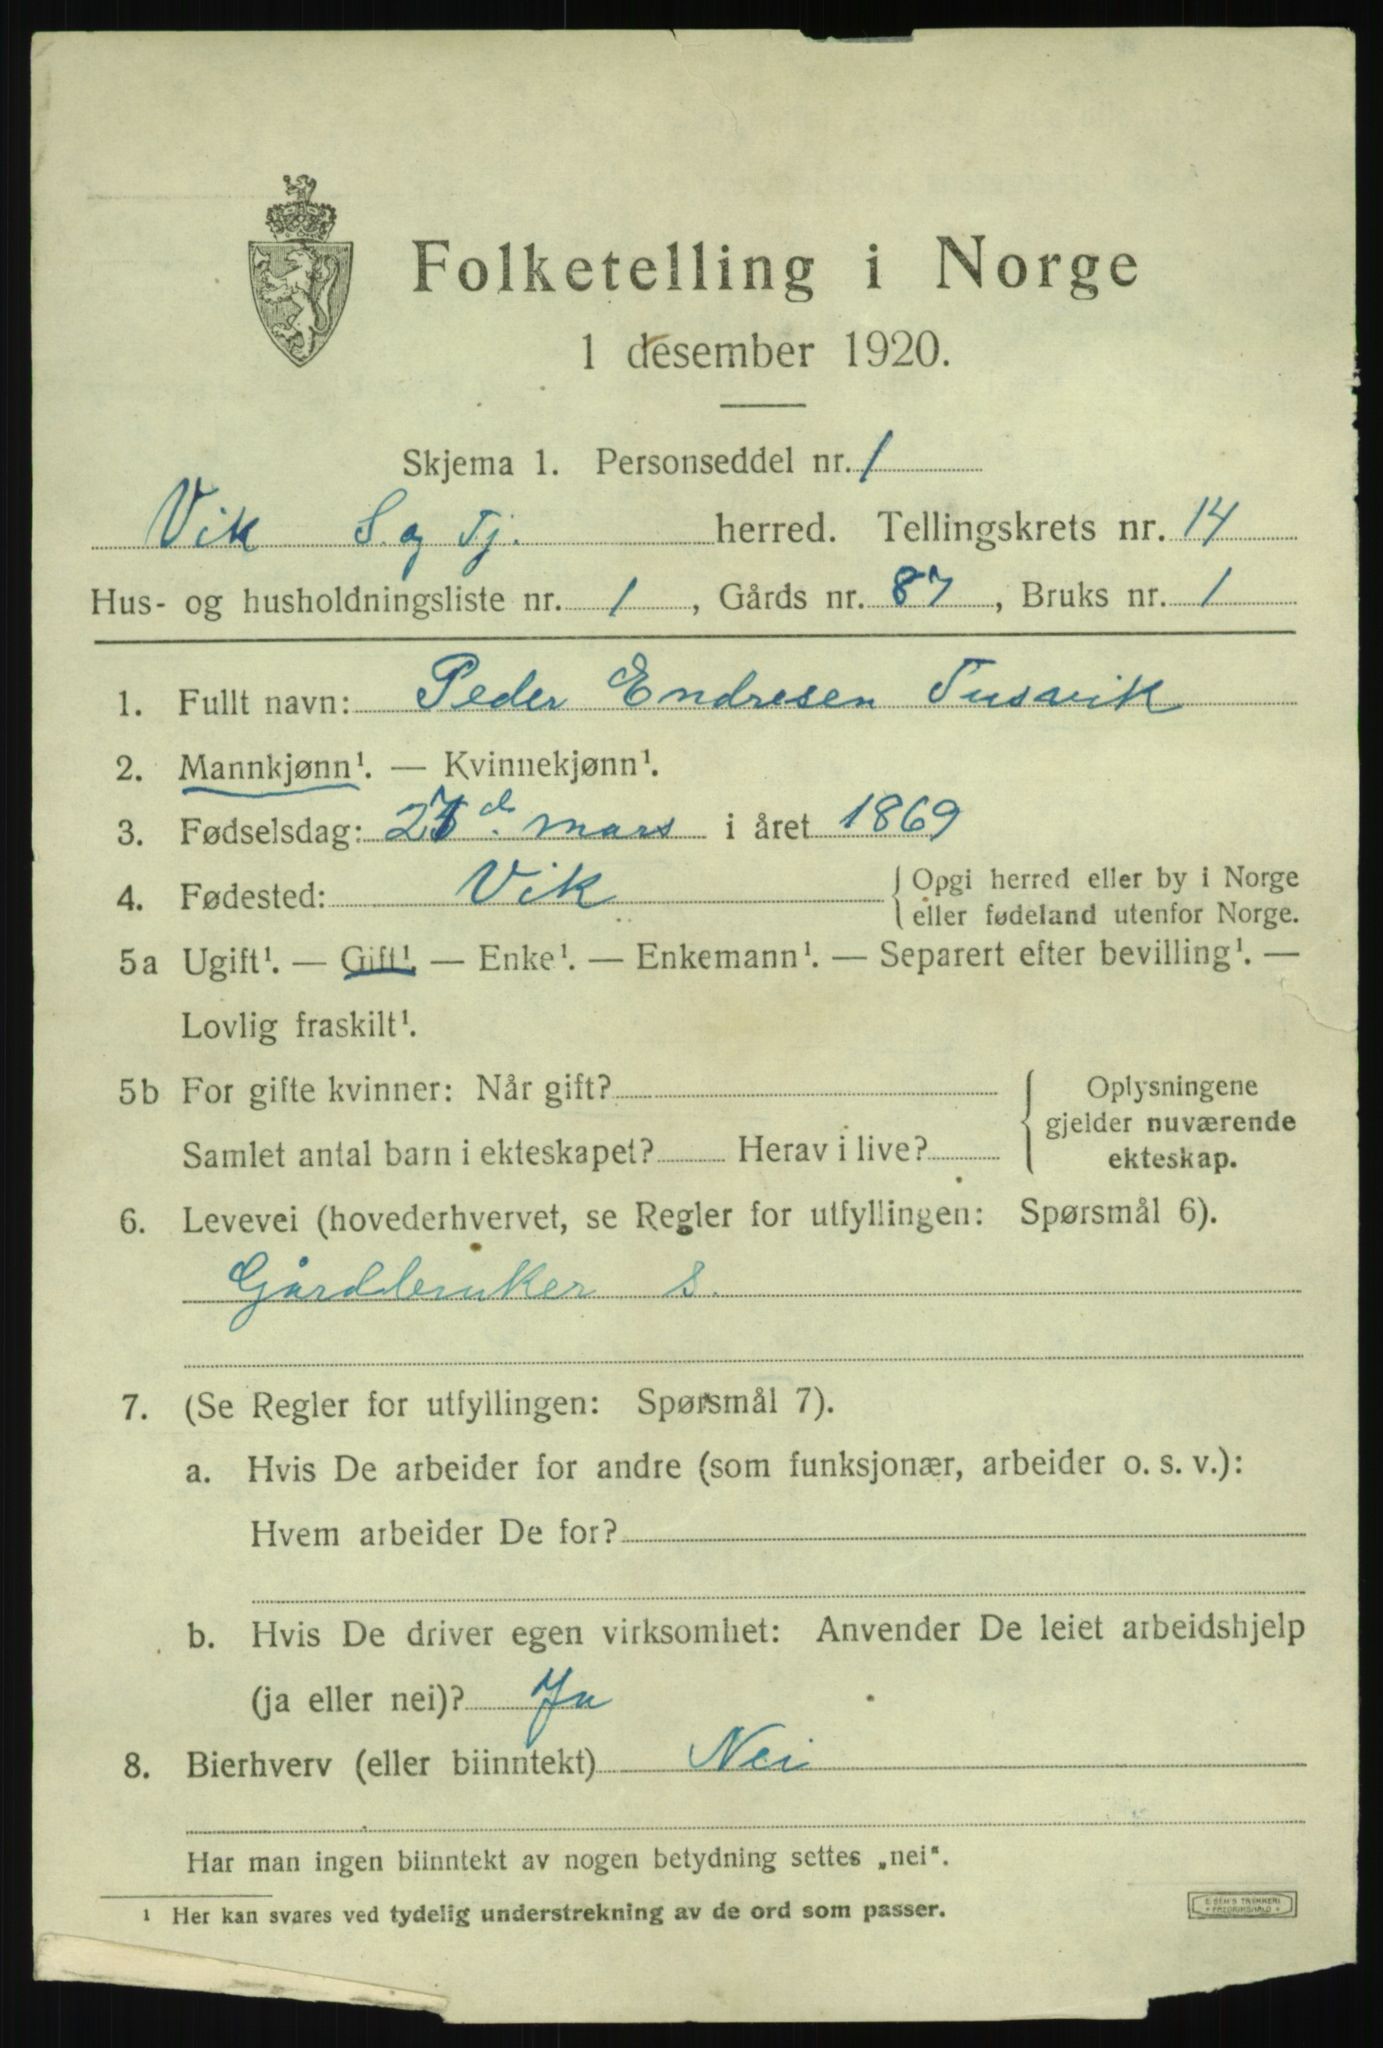 Folketelling i Norge
1 desember 1920.
Skjema 1. Personseddel nr. 1
Vik S. og Fj. herred. Tellingskrets nr. 14
Hus- og husholdningsliste nr. 1, Gårds nr. 87, Bruks nr. 1
1. Fullt navn: Peder Endresen Tusvik
2. Mannkjønn¹. — Kvinnekjønn¹.
3. Fødselsdag: mars i året 1869
4. Fødested: Vik {Opgi herred eller by i Norge
eller fødeland utenfor Norge.
5a Ugift¹. — Gift¹. — Enke¹. — Enkemann¹. — Separert efter bevilling¹. —
Lovlig fraskilt¹.
5b For gifte kvinner: Når gift? { Oplysningene
gjelder nuværende
Samlet antal barn i ekteskapet? Herav i live? ekteskap.
6. Levevei (hovederhvervet, se Regler for utfyllingen: Spørsmål 6).
Gårdbruker s.
7. (Se Regler for utfyllingen: Spørsmål 7).
a. Hvis De arbeider for andre (som funksjonær, arbeider o. s. v.):
Hvem arbeider De for?
b. Hvis De driver egen virksomhet: Anvender De leiet arbeidshjelp
(ja eller nei)? Ja
8. Bierhverv (eller biinntekt) Nei
Har man ingen biinntekt av nogen betydning settes „nei".
¹ Her kan svares ved tydelig understrekning av de ord som passer.